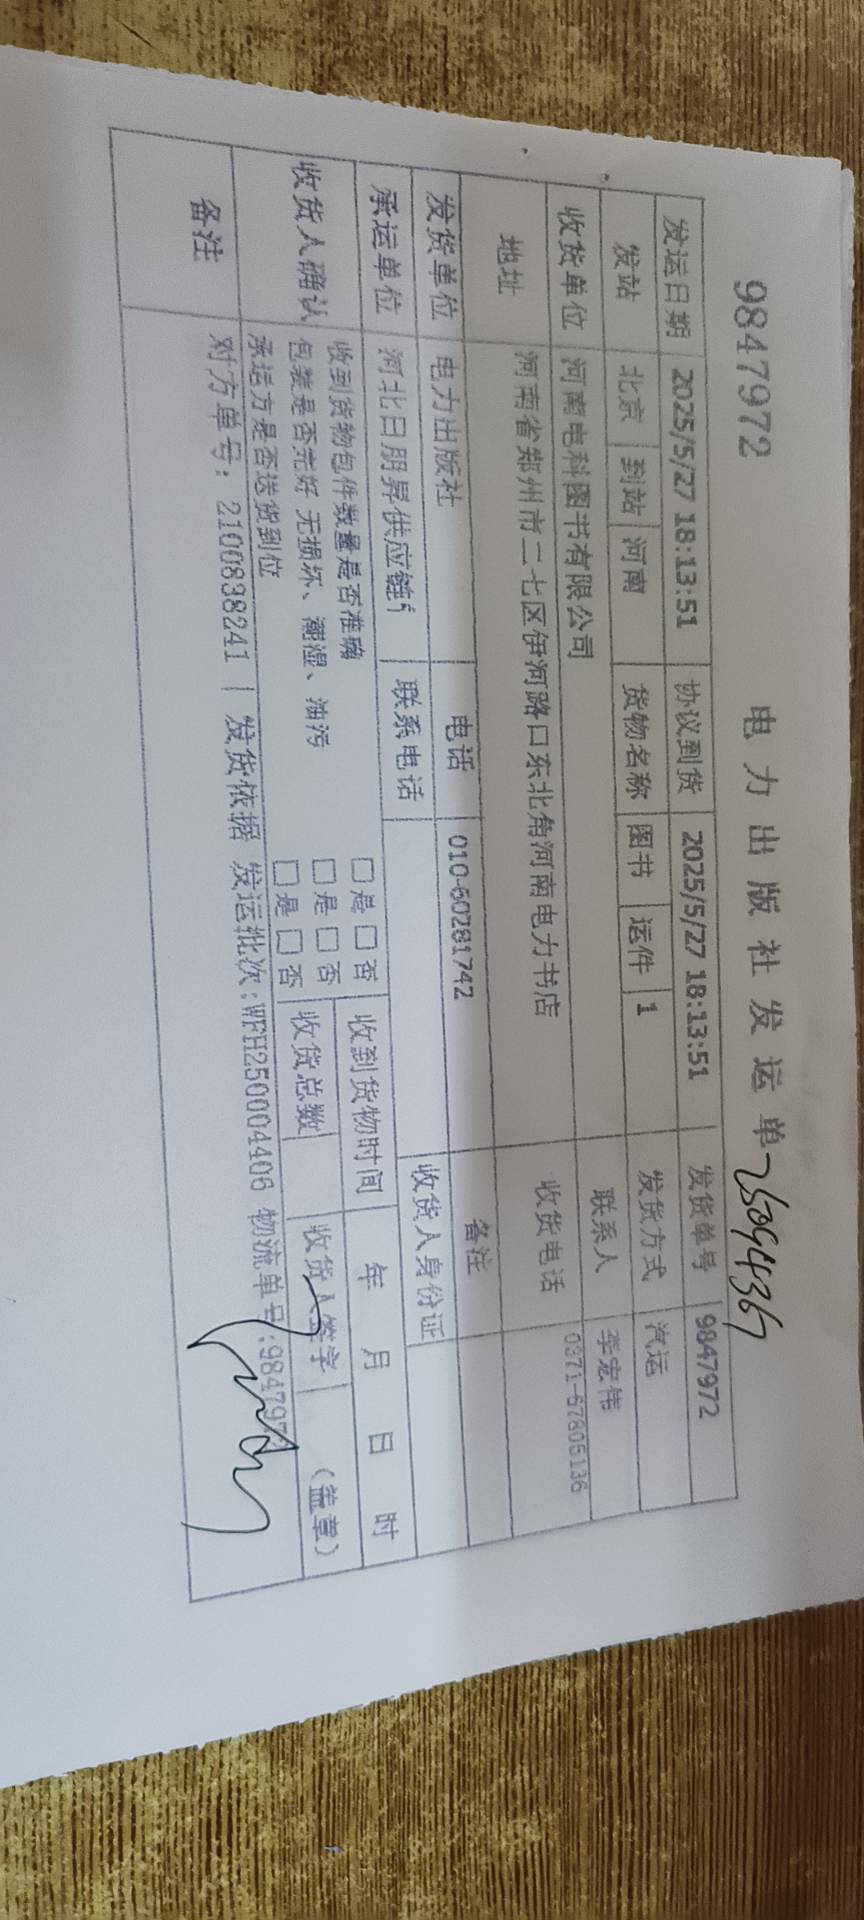 9847972
电力出版社发运单
25094367
发运日期 2025/5/27 18:13:51 协议到货 2025/5/27 18:13:51 发货单号 9847972
发站 北京 到站 河南 货物名称 图书 运件 1 发货方式 汽运
收货单位 河南电科图书有限公司 联系人 李宏伟
地址 河南省郑州市二七区伊河路口东北角河南电力书店 收货电话 0371-67805136
发货单位 电力出版社 电话 010-60281742 备注
承运单位 河北日朋昇供应链 联系电话 收货人身份证
收货人确认 收到货物包件数量是否准确 □是□否 收到货物时间 年 月 日 时
包装是否完好 无损坏、潮湿、油污 □是□否 收货总数 收货人签字 (盖章)
承运方是否送货到位 □是□否
备注 对方单号: 2100838241 | 发货依据 发运批次:WFH250004406 物流单号:9847972